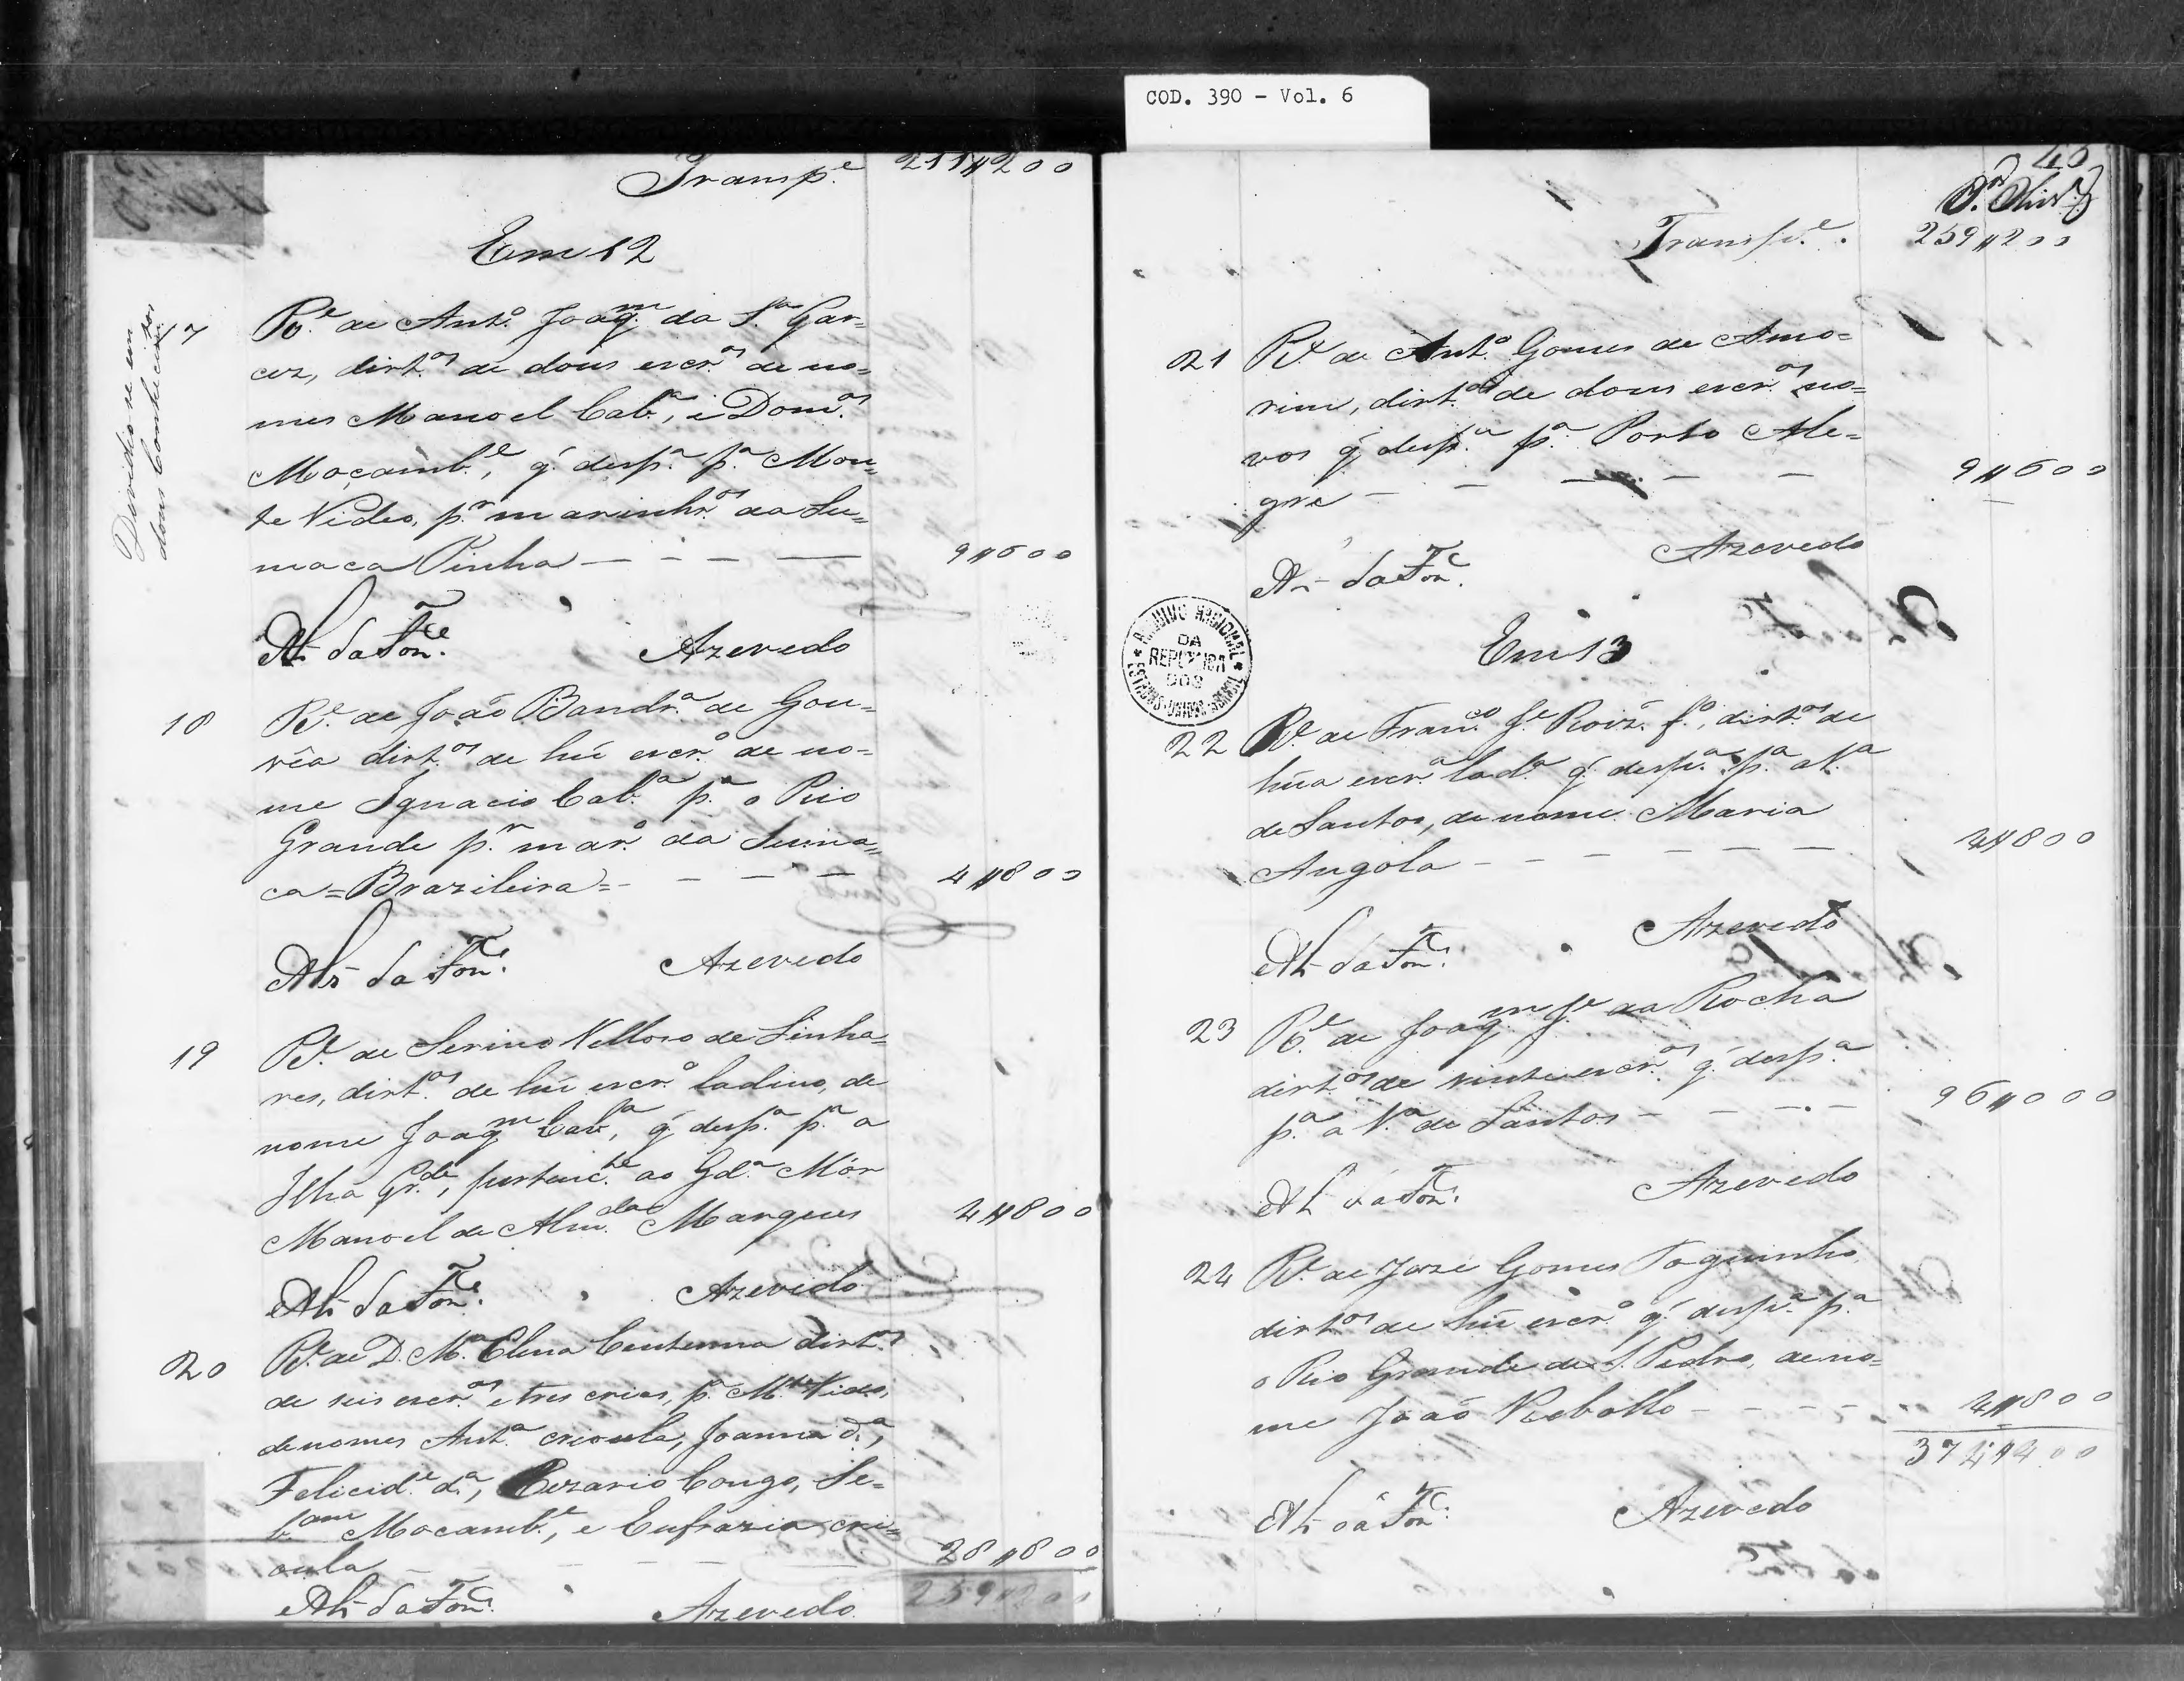 COD. 390 - Vol. 6
Transp.e 211#200
Em 12
Devidio se em
dous Conhecim.tos
17 R.e de Ant.o Joaq.m da S.a Gar=
cez, dirt.os de dous escr.os de no=
mes Manoel Cab.a, e Dom.os
Moçamb.e, q' desp.a p.a Mon=
te Video, p.r marinhr.os da Su=
maca Pinha 9#600
Al. da Fon.ca Azevedo
18 R.e de João Bandr.a de Gou=
vêa dirt.os de hũ escr.o de no=
me Ignacio Cab.a p.a o Rio
Grande p.r mar.o da Suma=
ca = Brazileira = 4#800
Als da Fon.ca Azevedo
19 R.e de Serino Velloso de Linha=
res, dirt.os de hũ escr.o ladino, de
nome Joaq.m Cab.a, q' desp.a p.a a
Ilha Gr.de, pertenc.te ao Gd.a Mór
Manoel de Alm.da Marques 4#800
Al. da Fon.ca Azevedo
20 R.e de D. M.a Elena Centenna dirt.os
de seis escr.os e tres crias, p.a M.te Video,
de nomes Ant.a crioula, Joanna d.a,
Felicid.e d.a, Cezario Congo, Se=
b.am Mocamb.e, e Eufrazia cri=
oula 28#800
Al. da Fon.ca Azevedo 259#200
Transp.e 259#200
21 R.e de Ant.o Gomes de Amo=
rim, dirt.os de dous escr.os no=
vos q' desp.a p.a Porto Ale=
gre 9#600
Al. da Fon.ca Azevedo
ARQUIVO NACIONAL
DA
REPUBLICA
DOS
ESTADOS UNIDOS BRASIL
Em 13
22 R.e de Fran.co J.e Roiz. f.o, dirt.os de
hũa escr.a lad.a q' desp.a p.a a V.a
de Santos, de nome Maria
Angola 4#800
Al. da Fon.ca Azevedo
23 R.e de Joaq.m J.e da Rocha
dirt.os de vinte escr.os q' desp.a
p.a a V.a de Santos 96#000
Al. da Fon.ca Azevedo
24 R.e de Jozé Gomes Foguinho
dirt.os de hũ escr.o q' desp.a p.a
o Rio Grande de S. Pedro, de no=
me João Rebollo 4#800
374#400
Al. da Fon.ca Azevedo